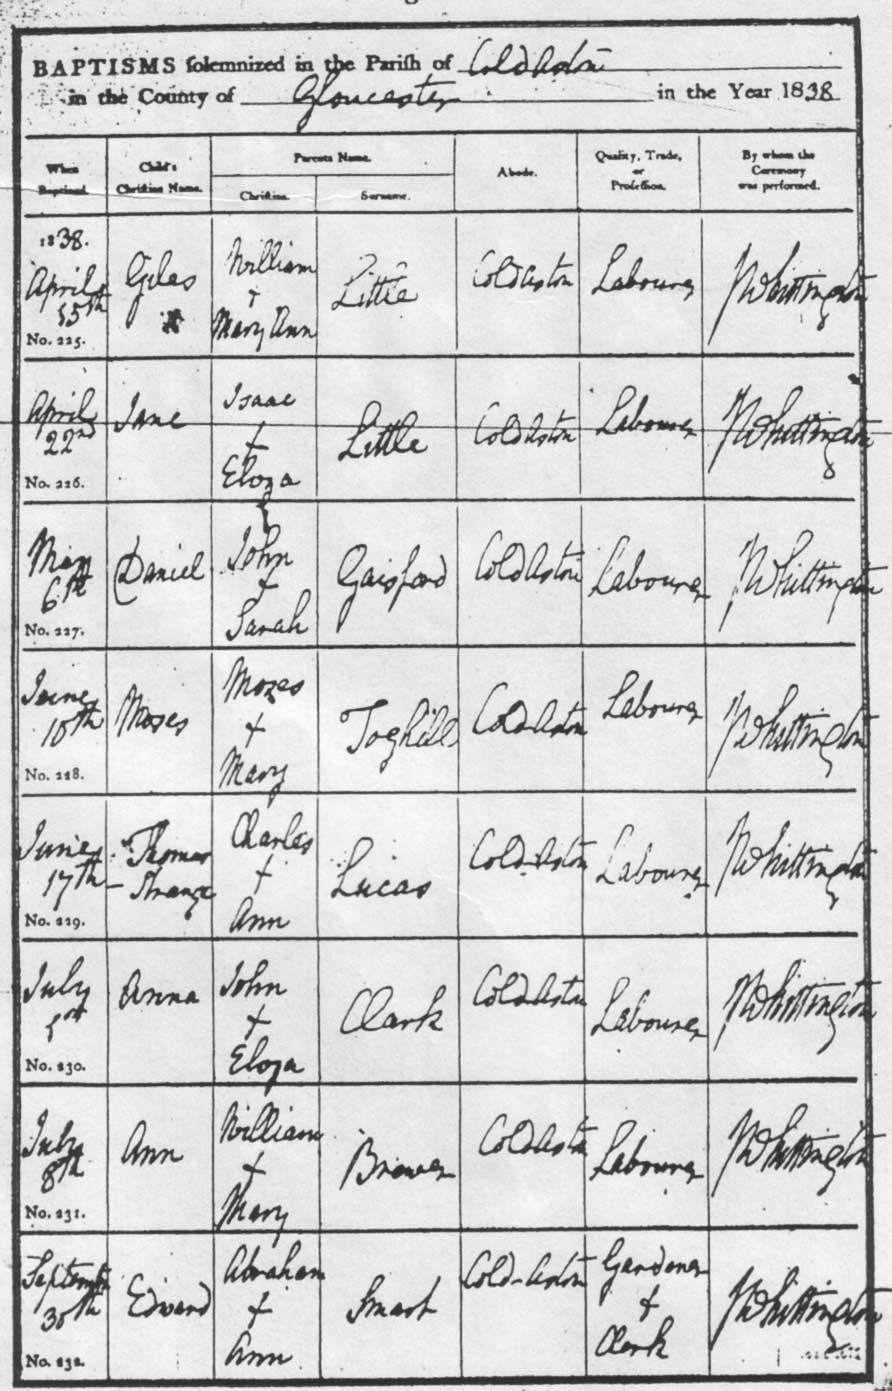 BAPTISMS solemnized in the Parish of Cold Aston
in the County of Gloucester in the Year 1838
When Baptized. Child's Christian Name. Parents Name. Abode. Quality, Trade, or Profession. By whom the Ceremony was performed.
Christian. Surname.
1838.
April 15th
Giles
William + Mary Ann
Little
Cold Aston
Labourer
J Whittington
No. 225.
April 22nd
Jane
Isaac + Eloza
Little
Cold Aston
Labourer
J Whittington
No. 226.
May 6th
Daniel
John + Sarah
Gaisford
Cold Aston
Labourer
J Whittington
No. 227.
June 10th
Moses
Moses + Mary
Toghill
Cold Aston
Labourer
J Whittington
No. 228.
June 17th
Thomas Strange
Charles + Ann
Lucas
Cold-Aston
Labourer
J Whittington
No. 229.
July 1st
Anna
John + Eloza
Clark
Cold Aston
Labourer
J Whittington
No. 230.
July 8th
Ann
William + Mary
Brewer
Cold Aston
Labourer
J Whittington
No. 231.
September 30th
Edward
Abraham + Ann
Smart
Cold-Aston
Gardener + Clerk
J Whittington
No. 232.